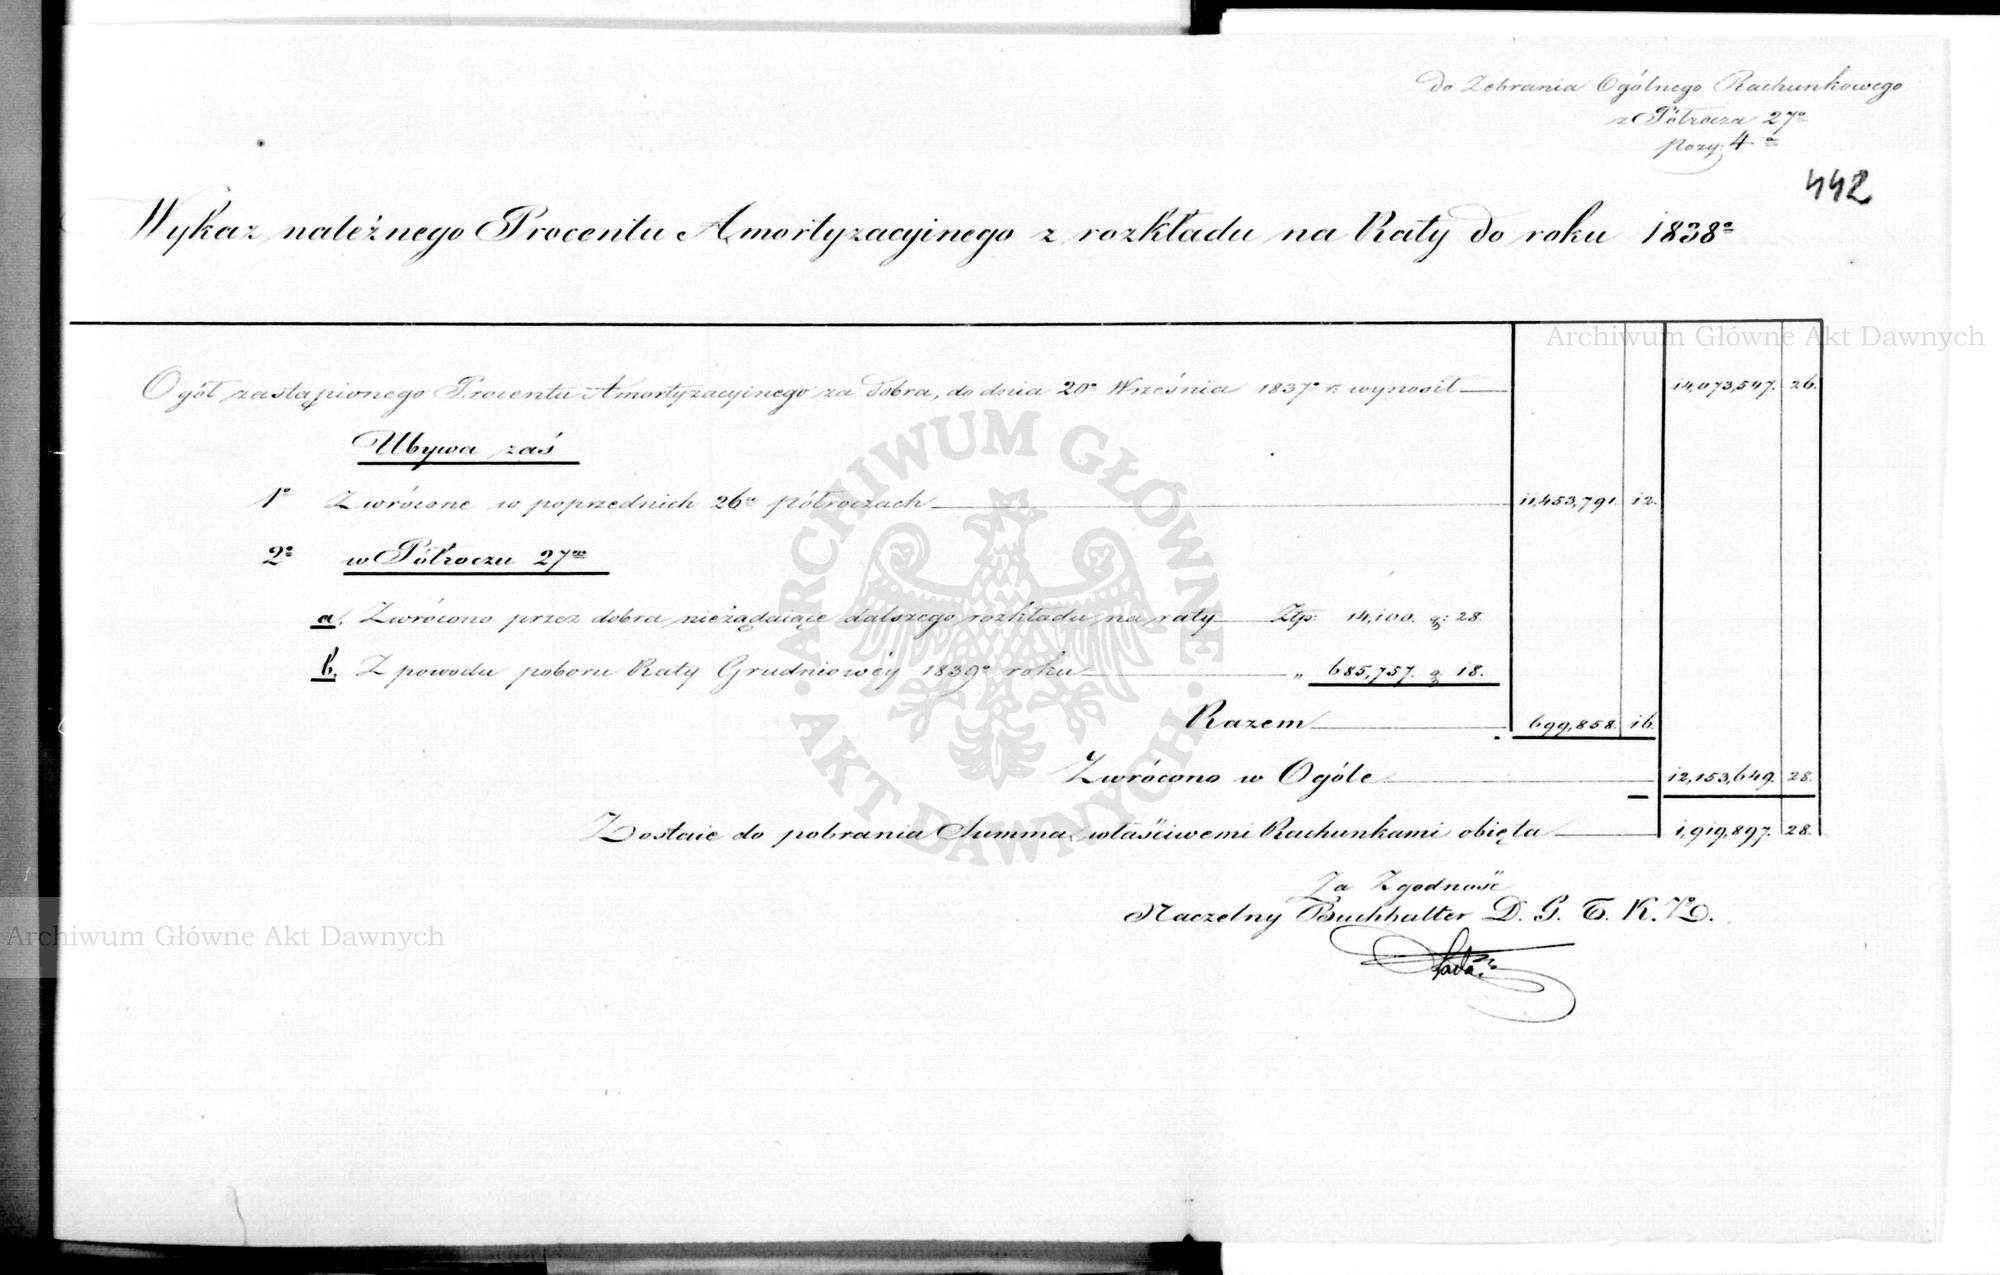 do Zebrania Ogólnego Rachunkowego
z Półrocza 27º
pozy: 4ª
442
Wykaz należnego Procentu Amortyzacyinego z rozkładu na Raty do roku 1838º
Archiwum Główne Akt Dawnych
Ogół zastąpionego Procentu Amortyzacyinego za dobra, do dnia 20º Września 1837º r: wynosił 14,073,547. 26.
Ubywa zaś
1º Zwrócone w poprzednich 26u półroczach 11,453,791. 12.
2º w Półroczu 27m
a/. Zwrócono przez dobra nieżądaiące dalszego rozkładu na raty Złp: 14,100. g: 28.
b. Z powodu poboru Raty Grudniowéy 1839º roku „ 685,757. g 18.
Razem 699,858. 16.
Zwrócono w Ogóle 12,153,649. 28.
Zostaie do pobrania Summa właściwemi Rachunkami obięta 1,919,897. 28.
Za Zgodność
Naczelny Buchhalter D. G. T. K. Zº.
Archiwum Główne Akt Dawnych
ARCHIWUM GŁÓWNE AKT DAWNYCH